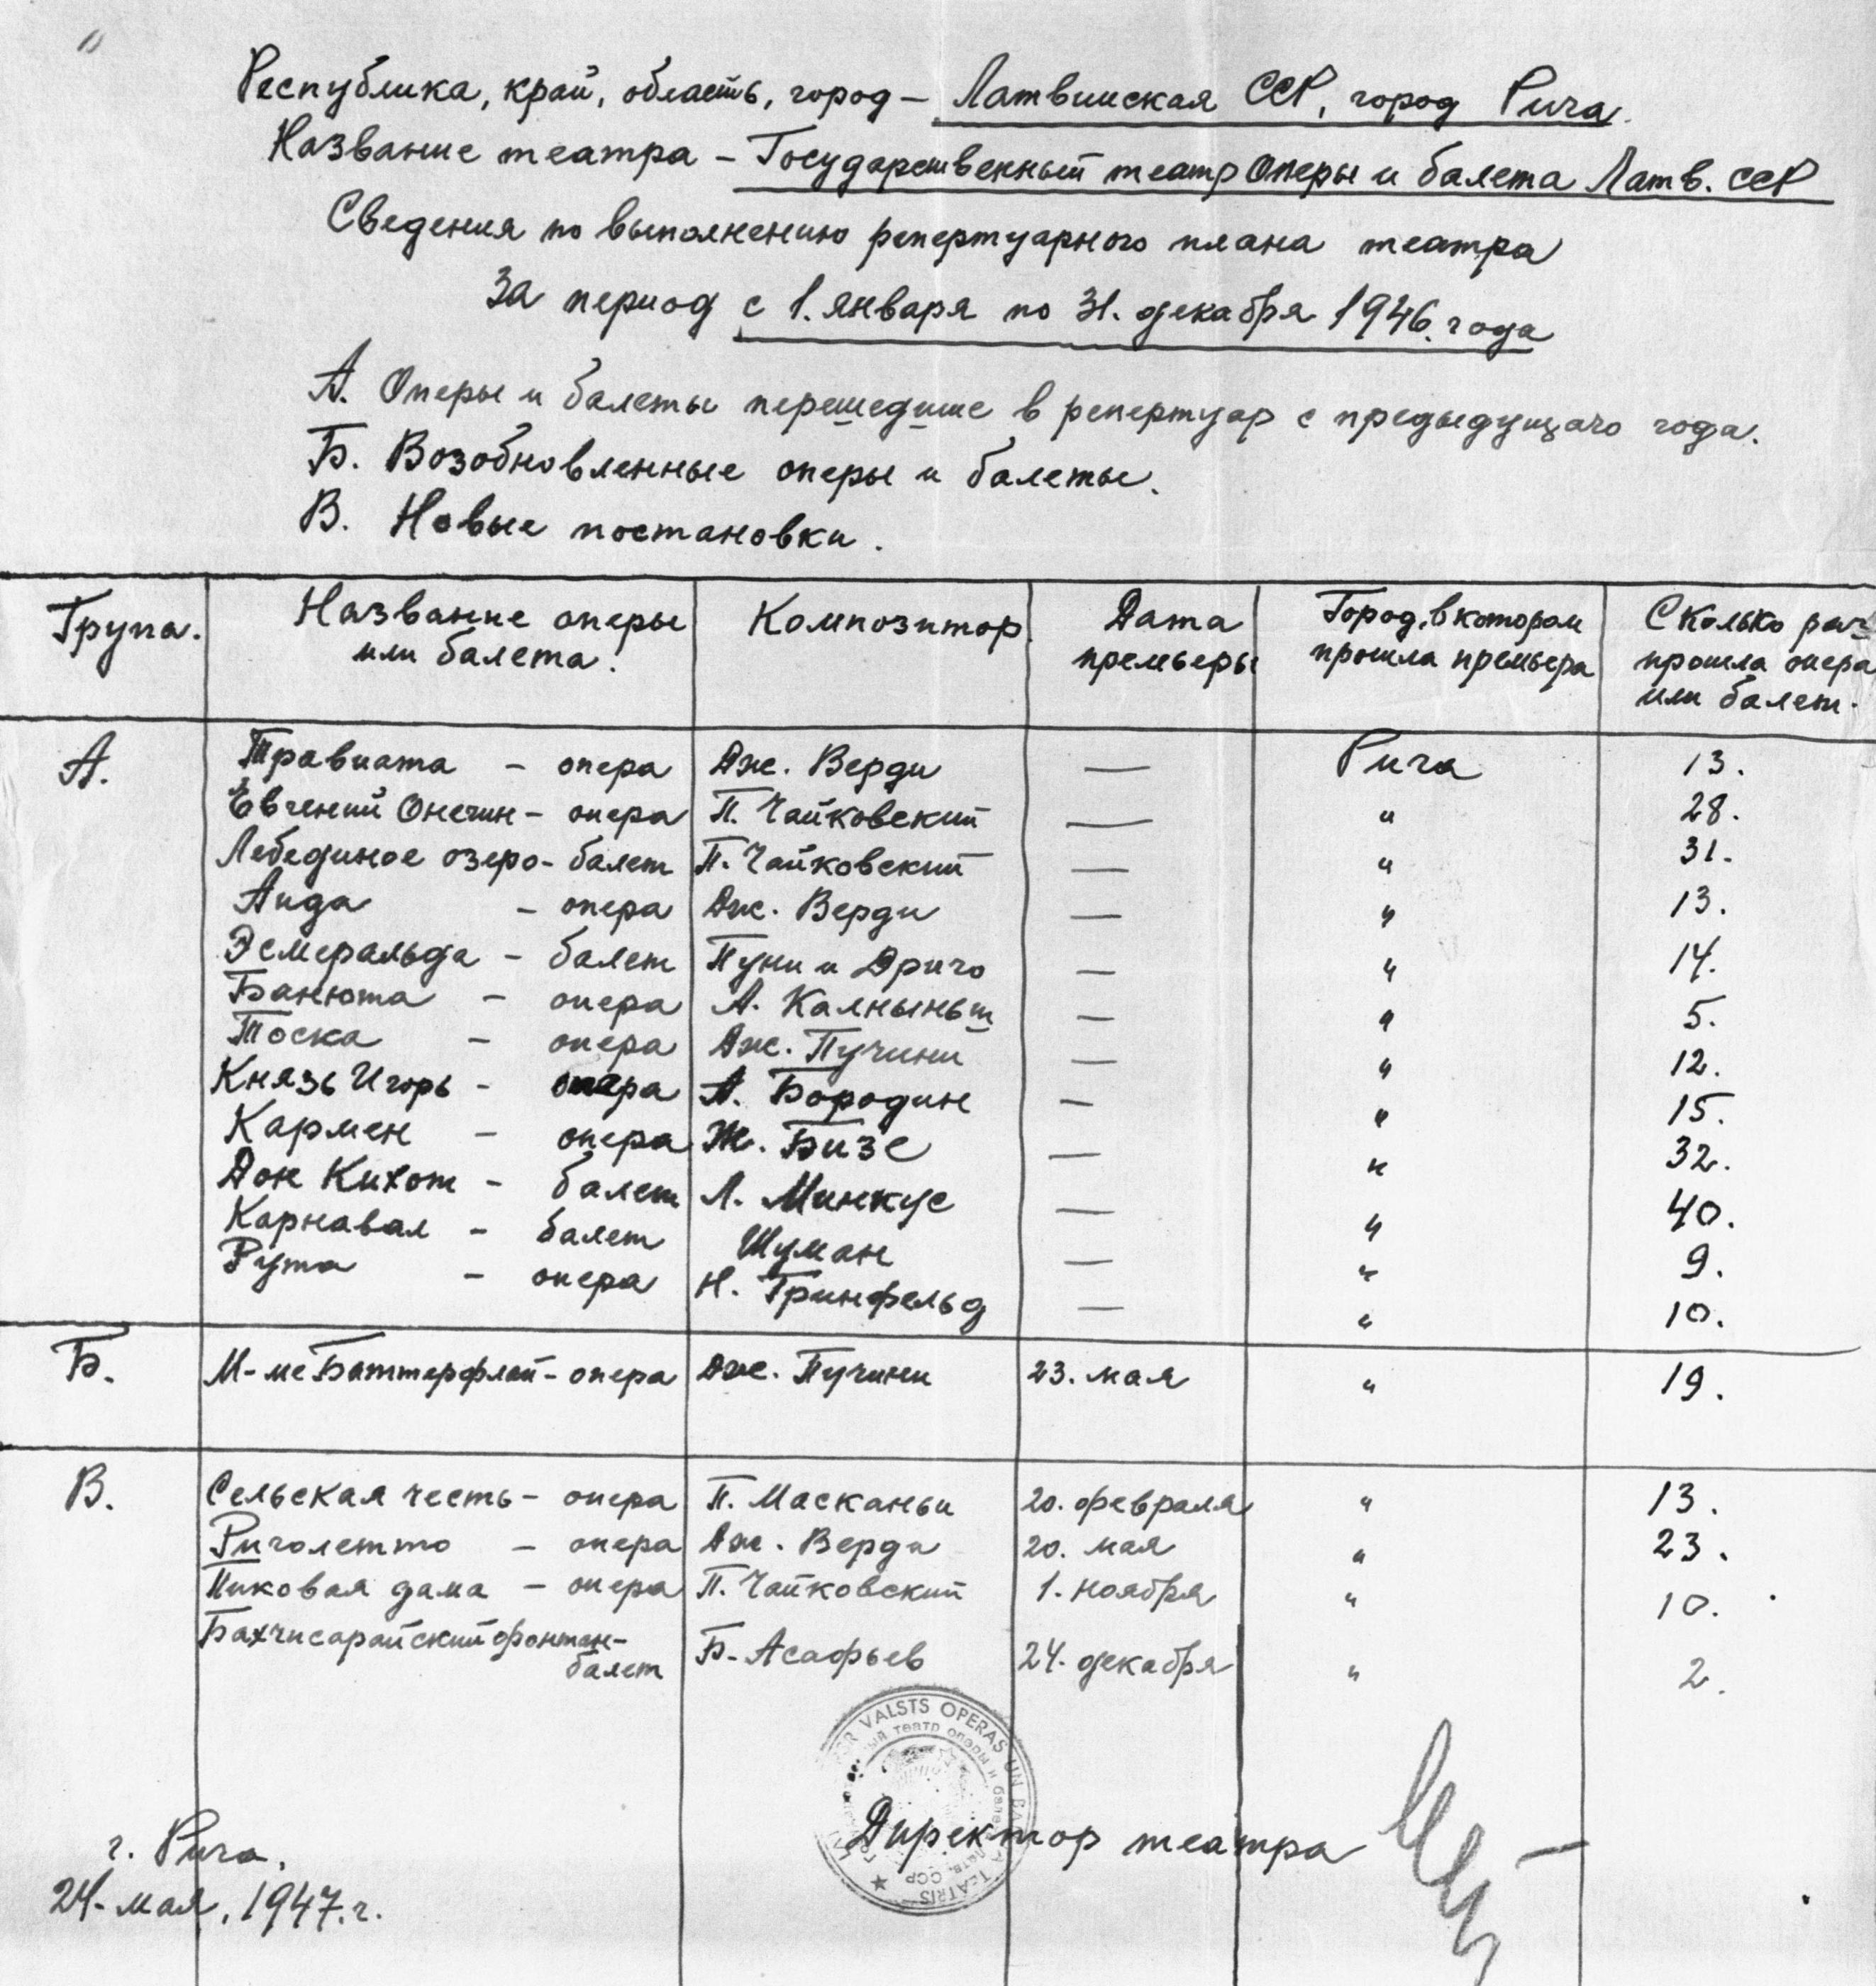 Республика, край, область, город – Латвийская ССР, город Рига.
Название театра – Государственный театр Оперы и балета Латв. ССР
Сведения по выполнению репертуарного плана театра
за период с 1. января по 31. декабря 1946. года
А. Оперы и балеты перешедшие в репертуар с предыдущаго года.
Б. Возобновленные оперы и балеты.
В. Новые постановки.
Група. Название оперы или балета. Композитор. Дата премьеры Город, в котором прошла премьера Сколько раз прошла опера или балет.
А. Травиата – опера Дж. Верди — Рига 13.
Евгений Онегин – опера П. Чайковский — " 28.
Лебединое озеро – балет П. Чайковский — " 31.
Аида – опера Дж. Верди — " 13.
Эсмеральда – балет Пуни и Дриго — " 14.
Банюта – опера А. Калныньш — " 5.
Тоска – опера Дж. Пучини — " 12.
Князь Игорь – опера А. Бородин — " 15.
Кармен – опера Ж. Бизе — " 32.
Дон Кихот – балет Л. Минкус — " 40.
Карнавал – балет Шуман — " 9.
Рута – опера Н. Гринфельд — " 10.
Б. М-ме Баттерфлай – опера Дж. Пучини 23. мая " 19.
В. Сельская честь – опера П. Масканьи 20. февраля " 13.
Риголетто – опера Дж. Верди 20. мая " 23.
Пиковая дама – опера П. Чайковский 1. ноября " 10.
Бахчисарайский фонтан –
балет Б. Асафьев 24. декабря " 2.
VALSTS OPERAS UN BALETA TEATRIS
театр оперы и балета Латв. ССР
Директор театра
г. Рига,
24. мая, 1947. г.